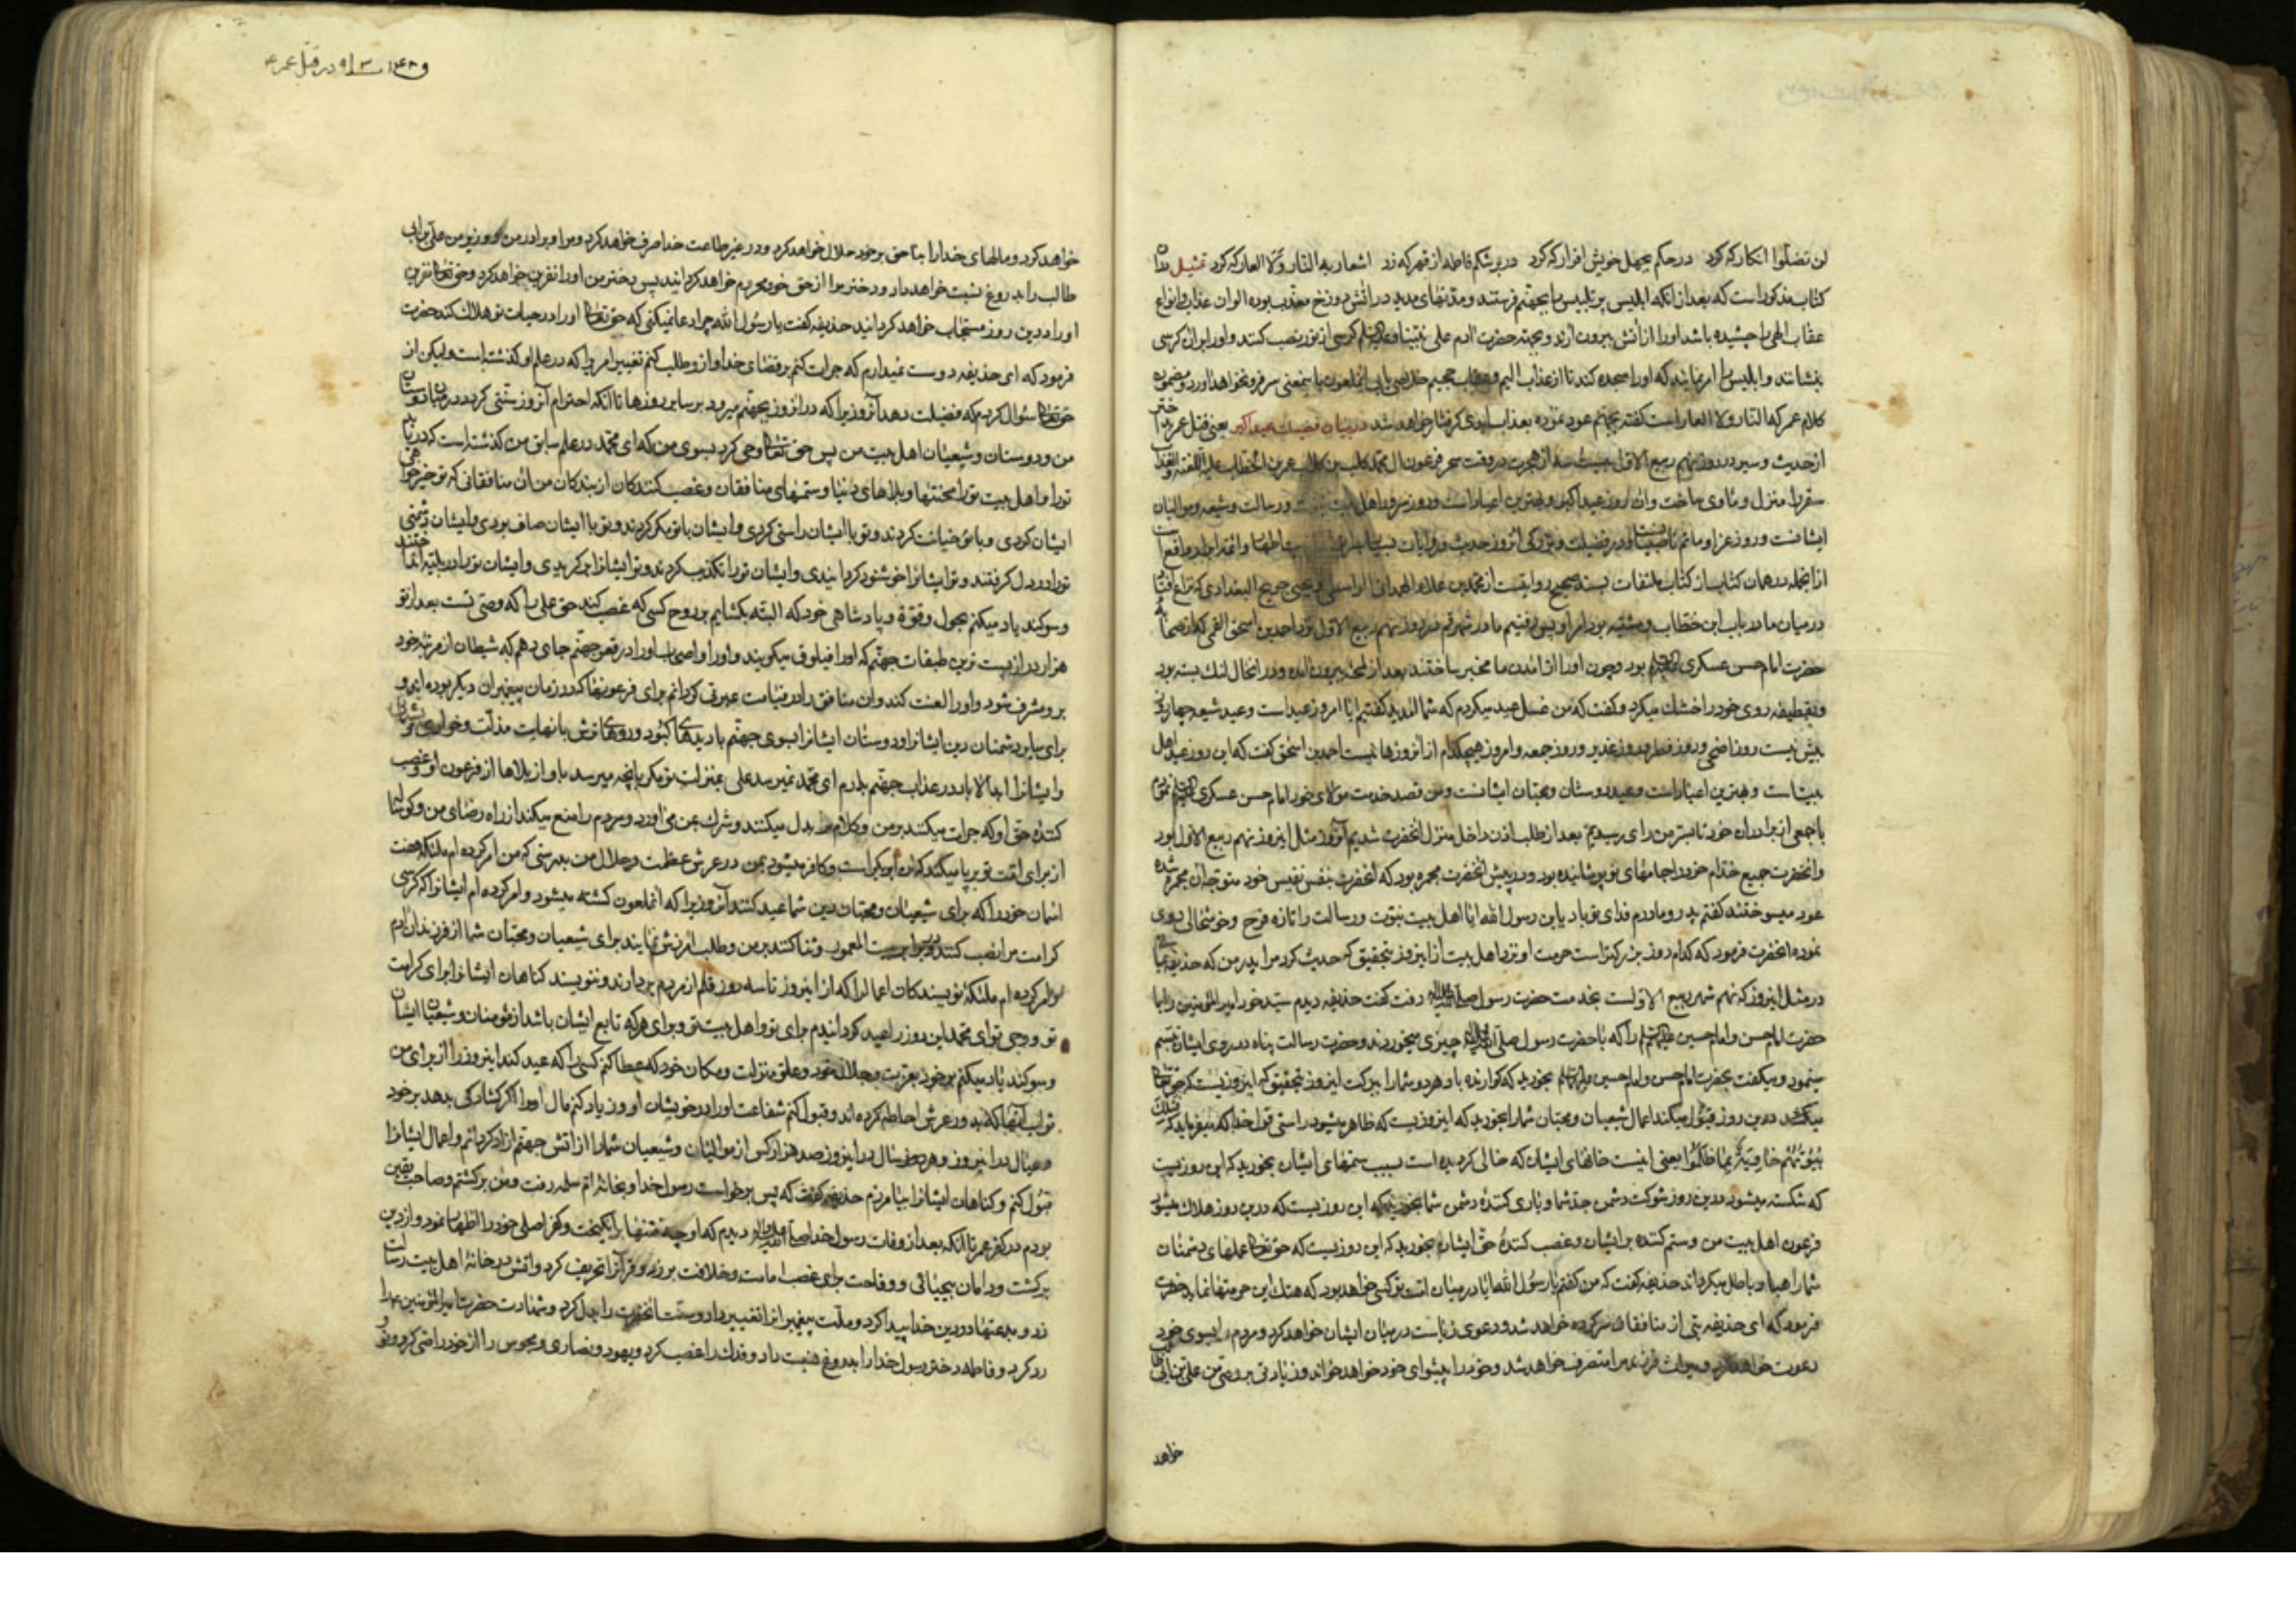 لن تضلوا انکار که کرد در حکم بجهل خویش اقرار که کرد در بر شکم فاطمه از قهر که زد اشعار به النار ولا العار که کرد تمثیل
کتاب مذکور است که بعد از آنکه ابلیس پر تلبیس را بجهنم فرستند و مدتهای مدید در آتش دوزخ معذب بوده الوان عذاب و انواع
عقاب الهی را چشیده باشد او را از آتش بیرون آرند و بجهته حضرت آدم علی نبینا و علیه السلم کرسی از نور نصب کنند و او را بران کرسی
بنشانند و ابلیس را امر نمایند که او را سجده کند تا از عذاب الیم و عقاب جحیم خلاصی یابی آنملعون باینمعنی سر فرو نخواهد آورد و مضمون
کلام عمر که النار ولا العار است گفته بجهنم عود نموده بعذاب ابدی گرفتار خواهد شد در بیان فضیلت عید اکبر یعنی قتل عمر
از حدیث و سیر در روز نهم ربیع الاول از هجرت در وقت سحر فرعون ال محمد کلب بن کلاب عمر بن الخطاب علیه اللعنه
سقر را منزل و ماوی ساخت و آن روز عید اکبر و بهترین اعیاد است و روز سرور اهل بیت و رسالت و شیعه و موالیان
ایشانست و روز عزا و ماتم و در فضیلت و بزرکی انروز حدیث و روایات بسیار اطهار و ائمه
از انجمله در همان کتاب از کتاب بسند صحیح روایتست از محمد بن علاء الهمدانی الواسطی و یحیی جریح البغدادی که
در میان ما در باب ابن خطاب و مشتبه بود امر او پس رفتیم ما در شهر قم در روز نهم ربیع الاول نزد احمد بن اسحق القمی که از
حضرت امام حسن عسکری بود و چون او را از آمدن ما مخبر ساختند بعد از لمحه بیرون آمده و در انحال لنک بسته بود
و بقطیفه روی خود را خشک میکرد و گفت که من غسل عید میکردم که شما آمدید گفتیم ایا امروز عید است و عید شیعه چهار
بیش نیست روز اضحی و روز فطر و روز غدیر و روز جمعه و امروز هیچکدام از انروزها نیست احمد بن اسحق گفت که این روز عید اهل
بیت است و بهترین اعیاد است و عید دوستان و محبان ایشانست و من قصد خدمت مولای خود امام حسن عسکری
با جمعی از برادران خود تا بسر من رای رسیدیم بعد از طلب اذن داخل منزل انحضرت شدیم آنروز مثل اینروز نهم ربیع الاول بود
و انحضرت جمیع خدام خود را جامهای نو پوشانیده بود و در پیش انحضرت مجمره بود که انحضرت بنفس نفیس خود متوجه آن مجمره
عود میسوختند گفتم پدر و مادرم فدای تو باد یابن رسول الله ایا اهل بیت نبوت و رسالت را تازه فرح و خوشحالی روی
نموده انحضرت فرمود که کدام روز بزرکتر است حرمت او نزد اهل بیت از اینروز بتحقیق که حدیث کرد مرا پدر من که حذیفه
در مثل اینروز که نهم شهر ربیع الاولست بخدمت حضرت رسول رفت گفت حذیفه دیدم سید خود امیر المؤمنین را با
حضرت امام حسن و امام حسین را که با حضرت رسول چیزی میخوردند و حضرت رسالت پناه در روی ایشان تبسم
مینمود و میگفت بحضرت امام حسن و امام حسین بخورید که گوارنده باد هر دو شما را ببرکت اینروز بتحقیق که اینروزیست که حق تعالی
میکند درین روز قبول میکند اعمال شیعیان و محبان شما را بخورید که اینروزیست که ظاهر میشود راستی قول خدا که میفرماید که فتلک
بیوتهم خاویة بما ظلموا یعنی اینست خانهای ایشان که خالی کردیده است بسبب ستمهای ایشان بخورید که این روزیست
که شکسته میشود درین روز شوکت دشمن جد شما و یاری کننده دشمن شما بخورید که این روزیست که درین روز هلاک میشود
فرعون اهل بیت من و ستم کننده بر ایشان و غصب کننده حق ایشان بخورید که این روزیست که حق تعالی عملهای دشمنان
شما را هبا و باطل میکرداند حذیفه گفت که من گفتم یا رسول الله ایا در میان امت تو کسی خواهد بود که هتک این حرمتها نماید حضرت
فرمود که ای حذیفه بتی از منافقان سرکرده خواهد شد و دعوی ریاست در میان ایشان خواهد کرد و مردم را بسوی خود
دعوت خواهد کرد و میراث فرزند مرا متصرف خواهد شد و خود را پیشوای خود خواهد خواند و زیادتی بر وصی من علی بن ابی
خواهد
در قتل عمر
خواهد کرد و مالهای خدا را بناحق بر خود حلال خواهد کرد و در غیر طاعت خدا صرف خواهد کرد و مرا و برادر من و وزیر من علی بن ابی
طالب را بدروغ نسبت خواهد داد و دختر مرا از حق خود محروم خواهد کردانید پس دختر من او را نفرین خواهد کرد و حق تعالی نفرین
او را درین روز مستجاب خواهد کردانید حذیفه گفت یا رسول الله چرا دعا نمیکنی که حق تعالی او را در حیات تو هلاک کند حضرت
فرمود که ای حذیفه دوست نمیدارم که جرات کنم بر قضای خدا و از او طلب کنم تغییر امریرا که در علم او گذشته است ولیکن از
حق تعالی سوال کردم که فضیلت دهد آنروزیرا که در انروز بجهنم میرود بر سایر روزها تا انکه احترام آنروز سنتی کردد در میان دوستان
من و دوستان و شیعیان اهل بیت من پس حق تعالی وحی کرد بسوی من که ای محمد در علم سابق من گذشته است که دریابد
تو را و اهل بیت تو را محنتها و بلاهای دنیا و ستمهای منافقان و غصب کنندکان از بندکان من آن منافقانی که تو خیر خواهی
ایشان کردی و با تو خیانت کردند و تو با ایشان راستی کردی و ایشان با تو مکر کردند و تو با ایشان صاف بودی و ایشان دشمنی
تو را در دل گرفتند و تو ایشانرا خوشنود کردانیدی و ایشان تو را تکذیب کردند و تو ایشانرا برکزیدی و ایشان تو را در بلیه انداختند
و سوکند یاد میکنم بحول و قوة و پادشاهی خود که البته بکشایم بر روح کسی که غصب کند حق علی را که وصی تست بعد از تو
هزار در از پست ترین طبقات جهنم که او را فیلوق میکویند و او را و اصحاب او را در قعر جهنم جای دهم که شیطان از مرتبه خود
برو مشرف شود و او را لعنت کند و آن منافق را در قیامت عبرتی کردانم برای فرعونها که در زمان پیغمبران دیکر بوده اند و
برای سایر دشمنان دین ایشانرا و دوستان ایشانرا بسوی جهنم با دیدهای کبود و روهای ترش با نهایت مذلت و خواری
و ایشانرا ابد الاباد در عذاب جهنم بدارم ای محمد نمیرسد علی بمنزلت تو مکر بانچه میرسد باو از بلاها از فرعون او و غصب
کننده حق او که جرات میکند بر من و کلام مرا بدل میکند و شرک بمن می اورد و مردم را منع میکند از راه رضای من و کوساله
از برای امت تو برپا میکند که آن ابوبکر است و کافر میشود بمن در عرش عظمت و جلال من بدرستی که من امر کرده ام ملئکه هفت
اسمان خود را که برای شیعیان و محبان دین شما عید کنند آنروزیرا که انملعون کشته میشود و امر کرده ام ایشانرا که کرسی
کرامت مرا نصب کنند در برابر بیت المعمور و ثنا کنند بر من و طلب آمرزش نمایند برای شیعیان و محبان شما از فرزندان آدم
و امر کرده ام ملئکه نویسندکان اعمال را که از اینروز تا سه روز قلم از مردم بردارند و ننویسند کناهان ایشانرا برای کرامت
تو و وصی تو ای محمد این روز را عید کردانیدم برای تو و اهل بیت تو و برای هر که تابع ایشان باشد از مؤمنان و شیعیان ایشان
و سوکند یاد میکنم بر خود بعزت و جلال خود و علو منزلت و مکان خود که عطا کنم کسی را که عید کند اینروز را از برای من
ثواب آنها که بدور عرش احاطه کرده اند و قبول کنم شفاعت او را در خویشان او و زیاد کنم مال او را اکر کشادکی بدهد بر خود
و عیال در اینروز و هر سال در اینروز صد هزار کس از موالیان و شیعیان شما را از آتش جهنم آزاد کردانم و اعمال ایشانرا
قبول کنم و کناهان ایشانرا بیامرزم حذیفه گفت که پس برخواست رسول خدا و بخانه ام سلمه رفت و من برکشتم و صاحب یقین
بودم در کفر عمر تا انکه بعد از وفات رسول خدا دیدم که او چه فتنها برانکیخت و کفر اصلی خود را اظهار نمود و از دین
برکشت و دامان بیحیائی و وقاحت برای غصب امامت و خلافت بر زد و قرآنرا تحریف کرد و آتش در خانه اهل بیت رسالت
زد و بدعتها در دین خدا پیدا کرد و ملت پیغمبر انرا تغییر داد و سنت انحضرت را بدل کرد و شهادت حضرت امیر المؤمنین
رد کرد و فاطمه دختر رسول خدا را بدروغ نسبت داد و فدک را غصب کرد و یهود و نصاری و مجوس را از خود راضی کرد و